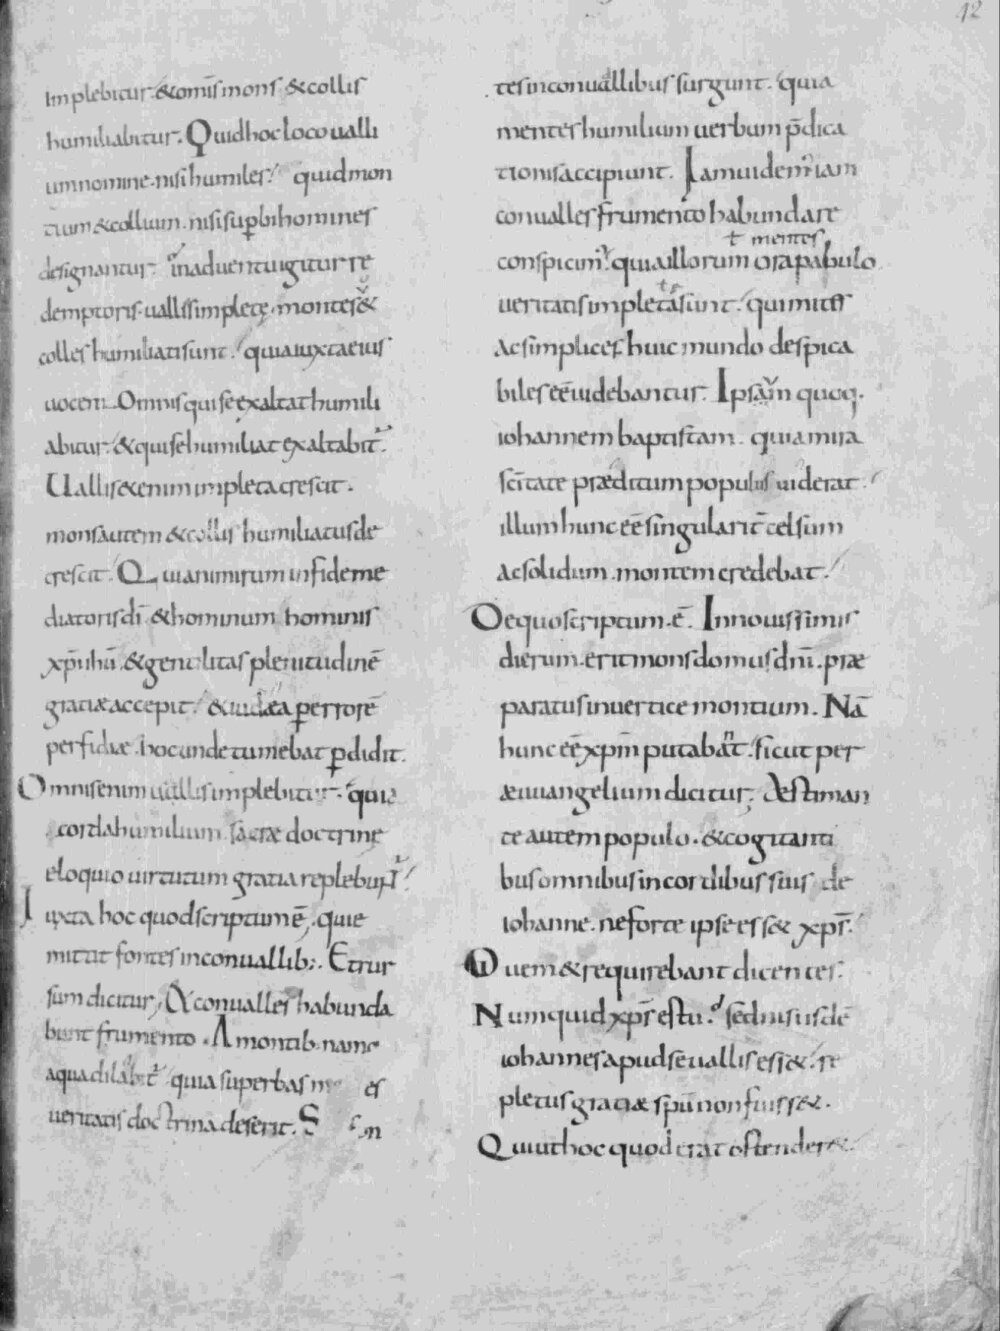 42
implebitur· &om̄is mons &collis
humiliabitur. Quid hoc loco ualli
um nomine· nisi humiles/ quid mon
tium &collium· nisi sup̱bi homines
designantur· in aduentu igitur re
demptoris· ualles implete· montes &
colles humiliati sunt/ quia iuxta eius
uocem. Omnis qui se exaltat humili
abitur· & qui se humiliat exaltabit͛.
Uallis &enim impleta crescit.
mons autem &collis humiliatus de
crescit. Quia nimirum in fide me
diatoris dī &hominum hominis
xp̄i ihū· &gentilitas plenitudinē
gratiae accepit/ &iudæa p̱ errorē
perfidiæ· hoc unde tumebat p̱didit.
Omnis enim uallis implebitur· quia
corda humilium sacræ doctrinę
eloquio uirtutum gratia replebunt͛/
Iuxta hoc quod scriptum ē· qui e
mittit fontes in conuallib;. Et rur
sum dicitur; &conualles habunda
bunt frumento. A montib· nam
aqua dilabit͛ quia superbas m es
ueritatis doctrina deserit. S
tes in conuallibus surgunt· quia
mentes humilium uerbum p̄dica
tionis accipiunt. Iam uidem͛ iam
conualles frumento habundare
ł mentes
conspicim͛· quia illorum ora pabulo
ueritatis impleta sunt/ qui mites
ac simplices huic mundo despica
biles eē uidebantur. Ipsum quoq·
iohannem baptistam· quia mira
sc̄itate præditum populus uiderat·/
illum hunc eē singularit̄ celsum
ac solidum· montem credebat/
De quo scriptum· ē. In nouissimis
dierum· erit mons domus dnī· præ
paratus in uertice montium. Nā
hunc eē xpm̄ putabant͛· sicut per
æuuangelium dicitur; Æstiman
te autem populo· &cogitanti
bus omnibus in cordibus suis de
iohanne· ne forte ipse ess& xps̄.
Quem &requirebant dicentes·
Numquid xps̄ es tu? sed nisi isdē
iohannes apud se uallis ess&· re
pletus gratiæ spū non fuiss&.
Qui ut hoc quod erat ostender&·